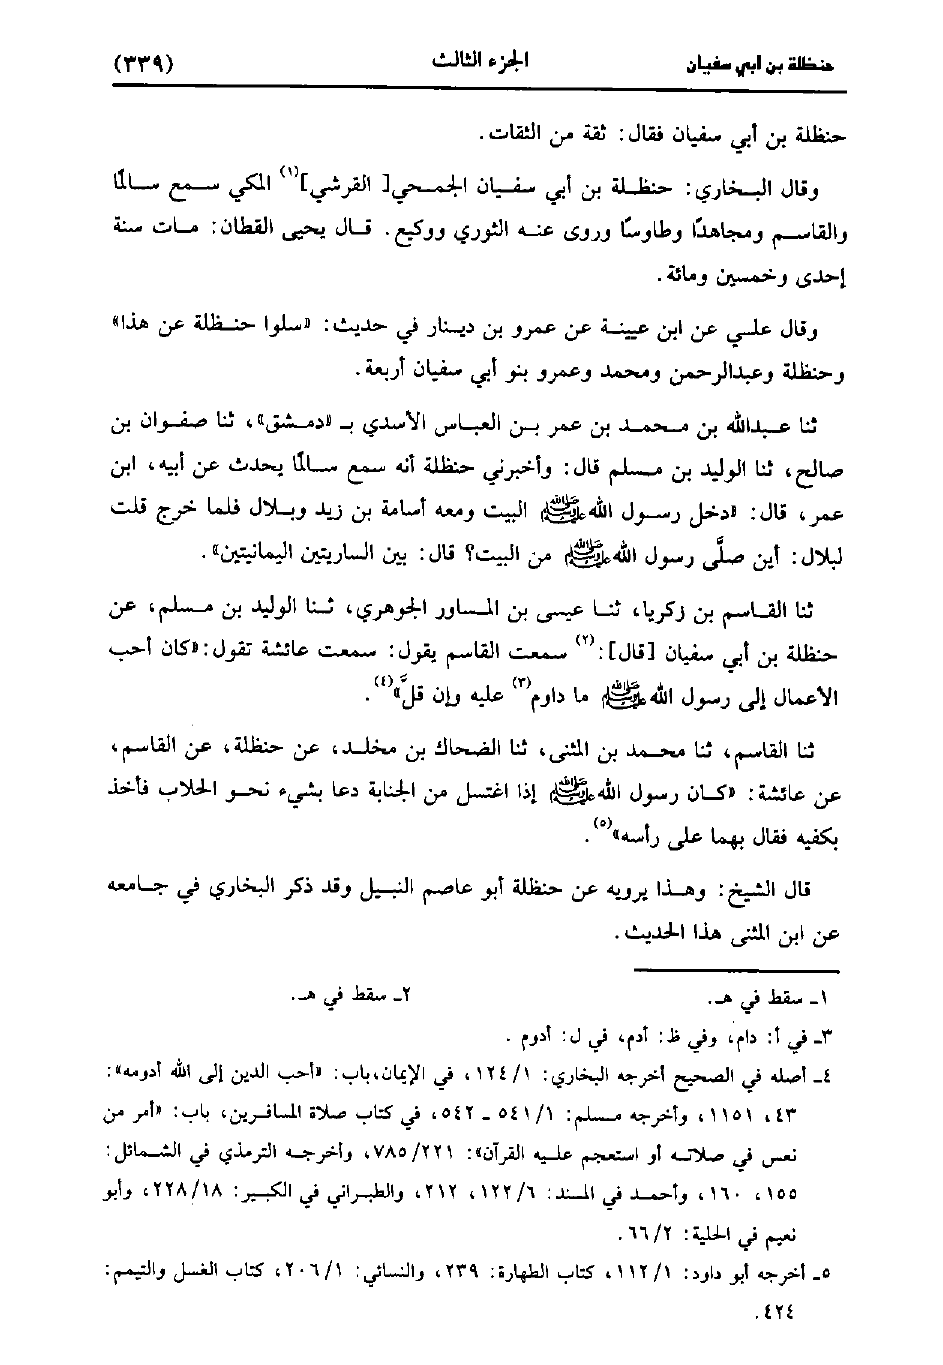 حنظلة بن أبي سفيان الجزء الثالث (٣٣٩)
حنظلة بن أبي سفيان فقال: ثقة من الثقات.
وقال البخاري: حنظلة بن أبي سفيان الجمحي[ القرشي](١) المكي سمع سالمًا
والقاسم ومجاهدًا وطاوسًا وروى عنه الثوري ووكيع. قال يحيى القطان: مات سنة
إحدى وخمسين ومائة.
وقال علي عن ابن عيينة عن عمرو بن دينار في حديث: «سلوا حنظلة عن هذا»
وحنظلة وعبدالرحمن ومحمد وعمرو بنو أبي سفيان أربعة.
ثنا عبدالله بن محمد بن عمر بن العباس الأسدي بـ «دمشق»، ثنا صفوان بن
صالح، ثنا الوليد بن مسلم قال: وأخبرني حنظلة أنه سمع سالمًا يحدث عن أبيه، ابن
عمر، قال: «دخل رسول اللهﷺ البيت ومعه أسامة بن زيد وبلال فلما خرج قلت
لبلال: أين صلَّى رسول اللهﷺ من البيت؟ قال: بين الساريتين اليمانيتين».
ثنا القاسم بن زكريا، ثنا عيسى بن المساور الجوهري، ثنا الوليد بن مسلم، عن
حنظلة بن أبي سفيان [قال]:(٢) سمعت القاسم يقول: سمعت عائشة تقول:«كان أحب
الأعمال إلى رسول اللهﷺ ما داوم(٣) عليه وإن قلَّ»(٤).
ثنا القاسم، ثنا محمد بن المثنى، ثنا الضحاك بن مخلد، عن حنظلة، عن القاسم،
عن عائشة: «كان رسول اللهﷺ إذا اغتسل من الجنابة دعا بشيء نحو الحلاب فأخذ
بكفيه فقال بهما على رأسه»(٥).
قال الشيخ: وهذا يرويه عن حنظلة أبو عاصم النبيل وقد ذكر البخاري في جامعه
عن ابن المثنى هذا الحديث.
١ـ سقط في هـ. ٢ـ سقط في هـ.
٣ـ في أ: دام، وفي ظ: أدم، في ل: أدوم .
٤ـ أصله في الصحيح أخرجه البخاري: ١٢٤/١، في الإيمان،باب: «أحب الدين إلى الله أدومه»:
٤٣، ١١٥١، وأخرجه مسلم: ٥٤١/١ ـ ٥٤٢، في كتاب صلاة المسافرين، باب: «أمر من
نعس في صلاته أو استعجم عليه القرآن»: ٧٨٥/٢٢١، وأخرجه الترمذي في الشمائل:
١٥٥، ١٦٠، وأحمد في المسند: ١٢٢/٦، ٢١٢، والطبراني في الكبير: ٢٢٨/١٨، وأبو
نعيم في الحلية: ٦٦/٢.
٥ـ أخرجه أبو داود: ١١٢/١، كتاب الطهارة: ٢٣٩، والنسائي: ٢٠٦/١، كتاب الغسل والتيمم:
٤٢٤.